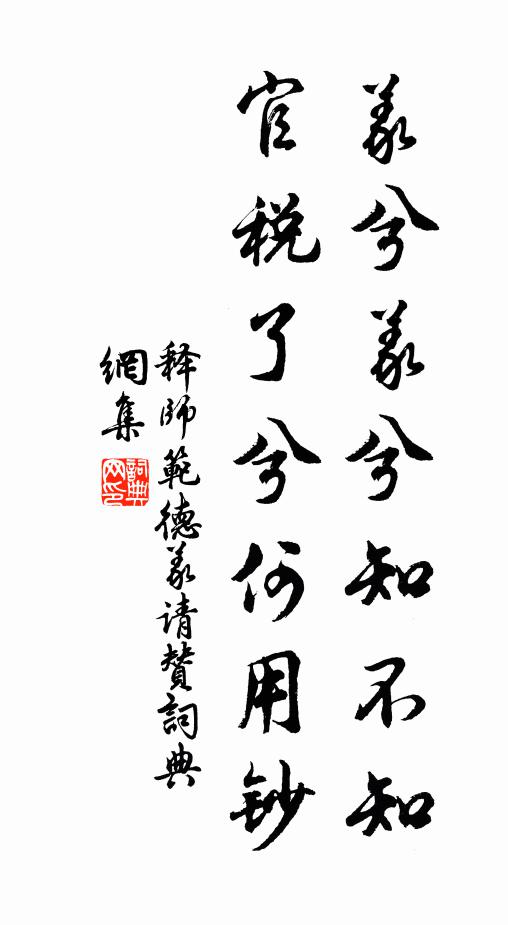 義兮義兮知不知
官税了兮何用鈔
释師範德義请贊詞典
網集
詞典
网印